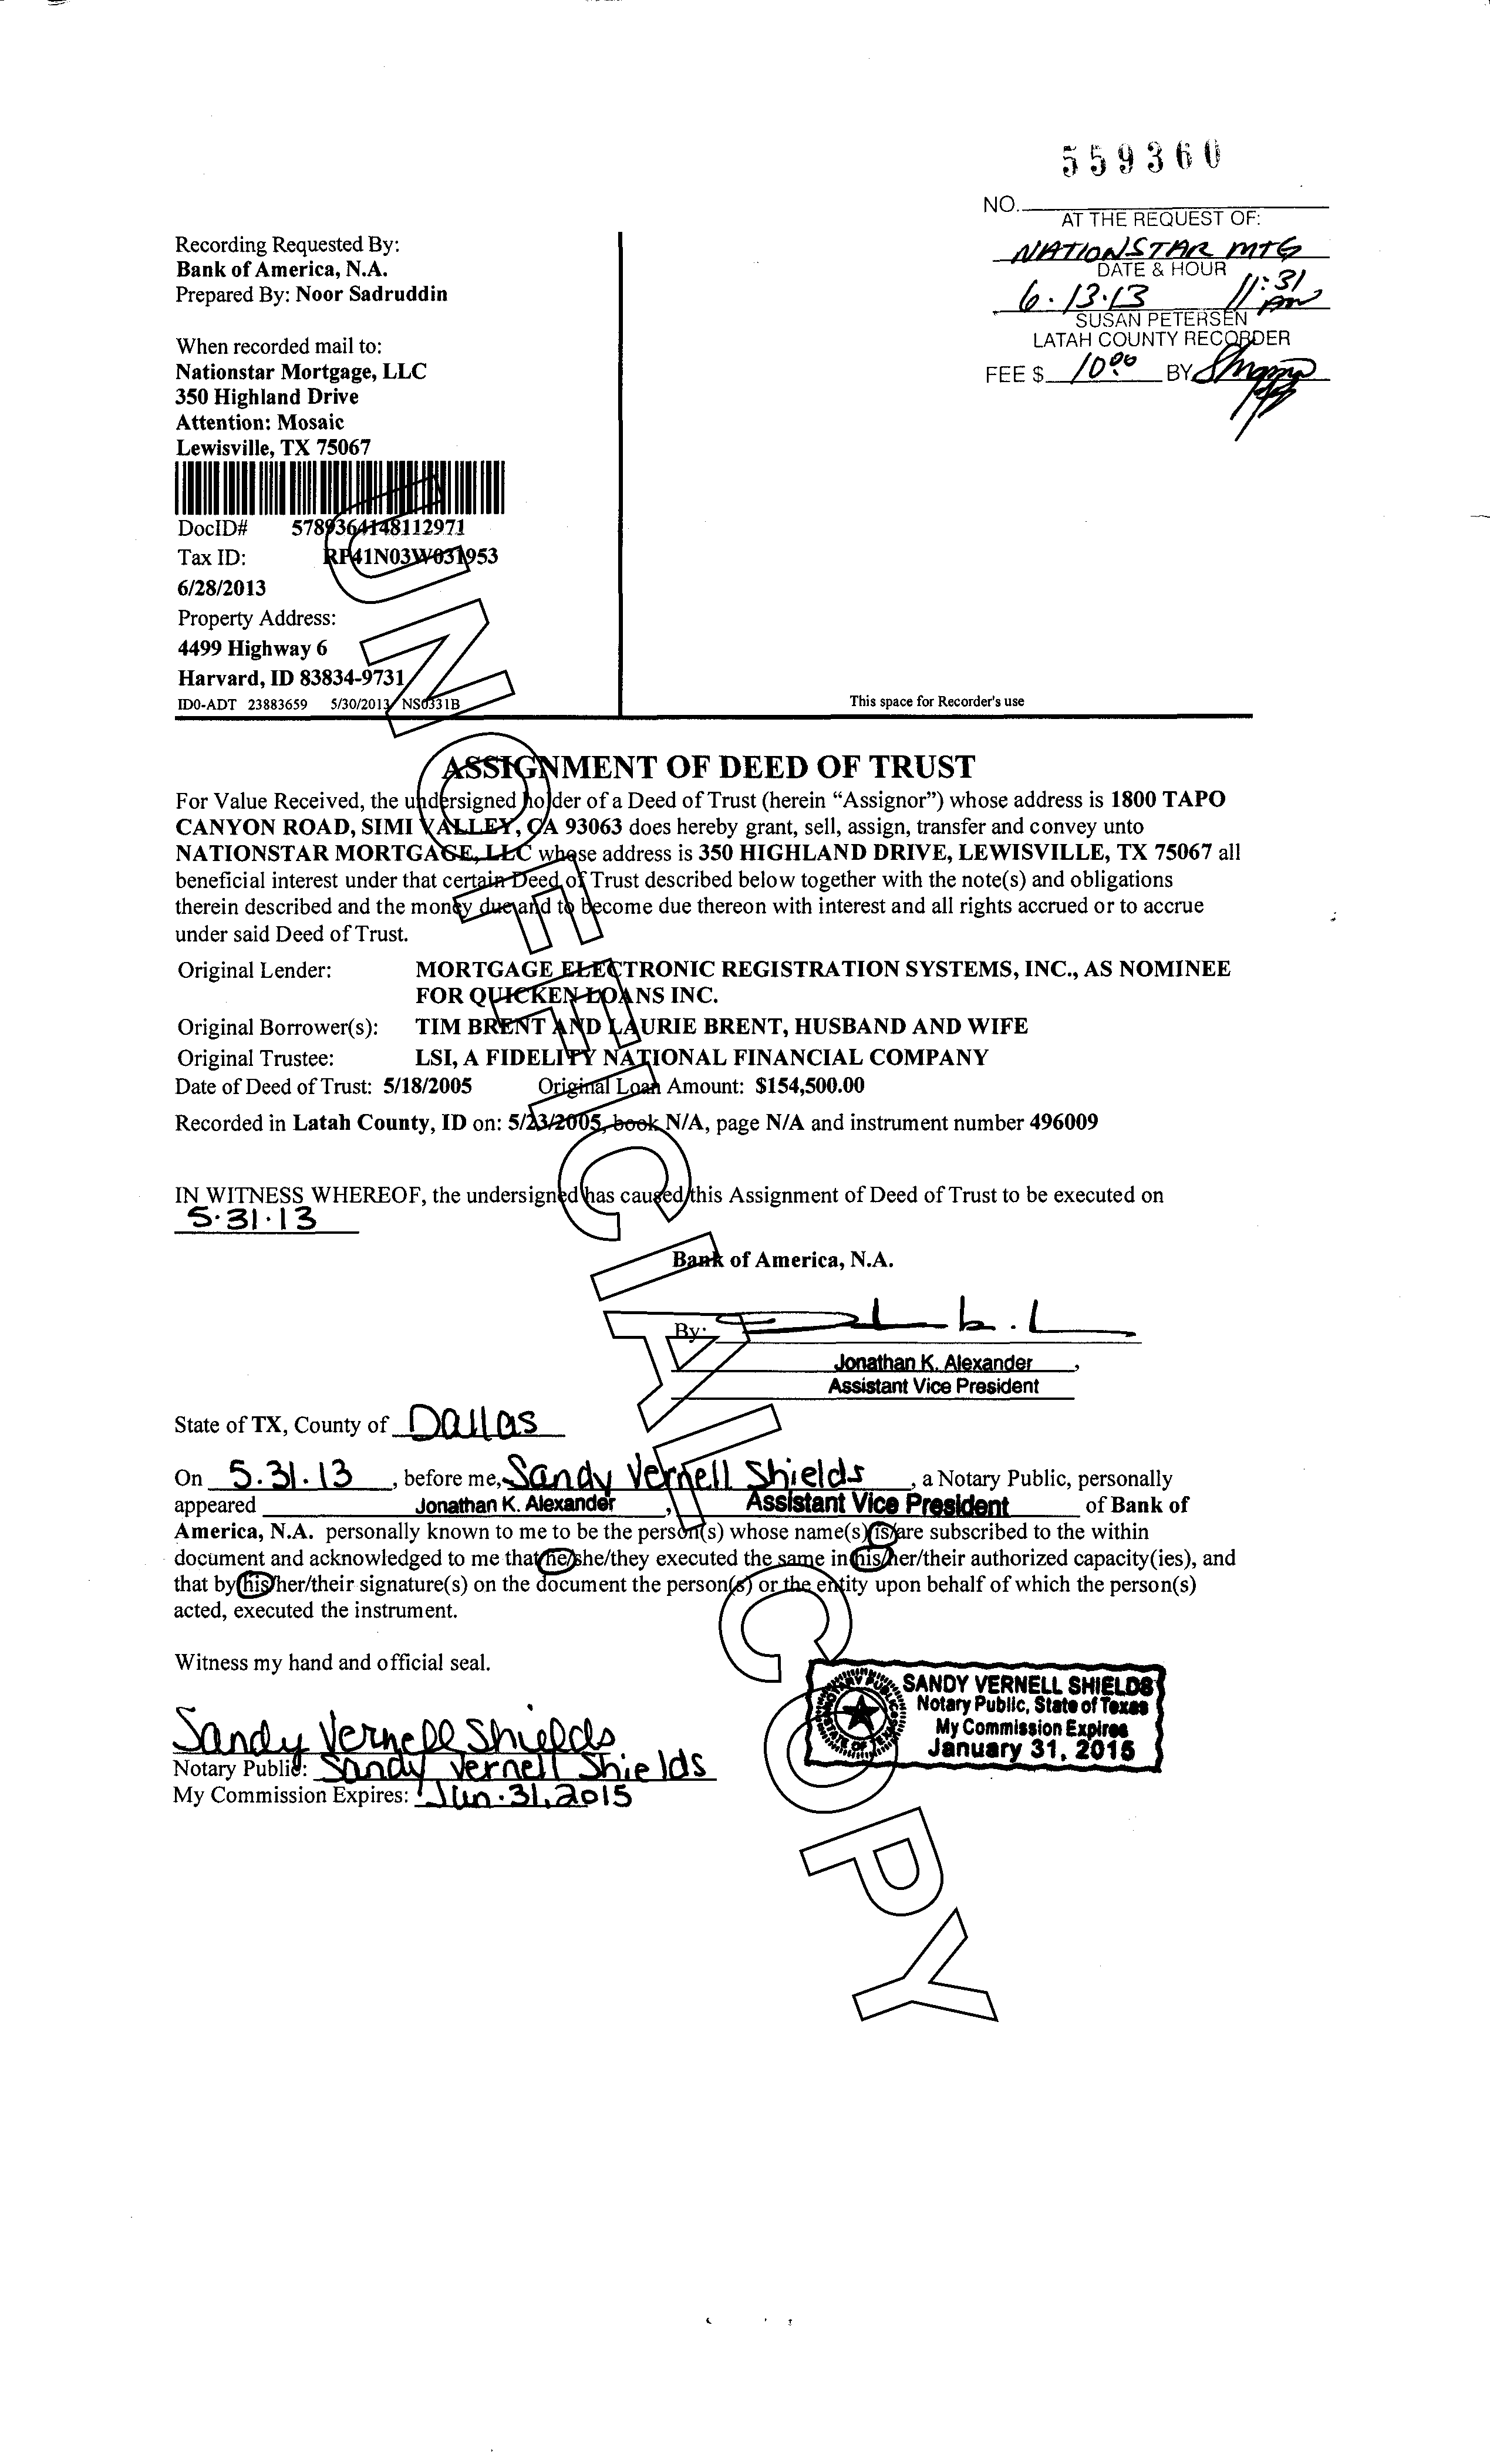 559360
NO.
AT THE REQUEST OF:
NATIONSTAR MTG
DATE & HOUR
6.13.13 11:31 AM
SUSAN PETERSEN
LATAH COUNTY RECORDER
FEE $ 10.00 BY
Recording Requested By:
Bank of America, N.A.
Prepared By: Noor Sadruddin
When recorded mail to:
Nationstar Mortgage, LLC
350 Highland Drive
Attention: Mosaic
Lewisville, TX 75067
DocID# 5789364148112971
Tax ID: RP41N03W031953
6/28/2013
Property Address:
4499 Highway 6
Harvard, ID 83834-9731
ID0-ADT 23883659 5/30/2013 NS0331B
This space for Recorder's use
ASSIGNMENT OF DEED OF TRUST
For Value Received, the undersigned holder of a Deed of Trust (herein “Assignor”) whose address is 1800 TAPO
CANYON ROAD, SIMI VALLEY, CA 93063 does hereby grant, sell, assign, transfer and convey unto
NATIONSTAR MORTGAGE, LLC whose address is 350 HIGHLAND DRIVE, LEWISVILLE, TX 75067 all
beneficial interest under that certain Deed of Trust described below together with the note(s) and obligations
therein described and the money due and to become due thereon with interest and all rights accrued or to accrue
under said Deed of Trust.
Original Lender: MORTGAGE ELECTRONIC REGISTRATION SYSTEMS, INC., AS NOMINEE
FOR QUICKEN LOANS INC.
Original Borrower(s): TIM BRENT AND LAURIE BRENT, HUSBAND AND WIFE
Original Trustee: LSI, A FIDELITY NATIONAL FINANCIAL COMPANY
Date of Deed of Trust: 5/18/2005 Original Loan Amount: $154,500.00
Recorded in Latah County, ID on: 5/23/2005, book N/A, page N/A and instrument number 496009
IN WITNESS WHEREOF, the undersigned has caused this Assignment of Deed of Trust to be executed on
5.31.13
Bank of America, N.A.
By:
Jonathan K. Alexander ,
Assistant Vice President
State of TX, County of Dallas
On 5.31.13 , before me, Sandy Vernell Shields , a Notary Public, personally
appeared Jonathan K. Alexander , Assistant Vice President of Bank of
America, N.A. personally known to me to be the person(s) whose name(s) is/are subscribed to the within
document and acknowledged to me that he/she/they executed the same in his/her/their authorized capacity(ies), and
that by his/her/their signature(s) on the document the person(s) or the entity upon behalf of which the person(s)
acted, executed the instrument.
Witness my hand and official seal.
SANDY VERNELL SHIELDS
Notary Public, State of Texas
My Commission Expires
January 31, 2015
NOTARY PUBLIC
STATE OF TEXAS
Sandy Vernell Shields
Notary Public: Sandy Vernell Shields
My Commission Expires: Jan. 31, 2015
UNOFFICIAL COPY